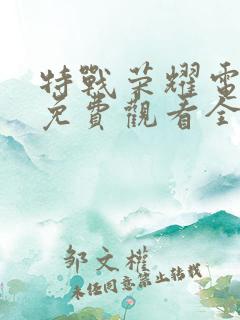 特戰荣耀電
免費觀看全
邹文權
未经同意禁止转载